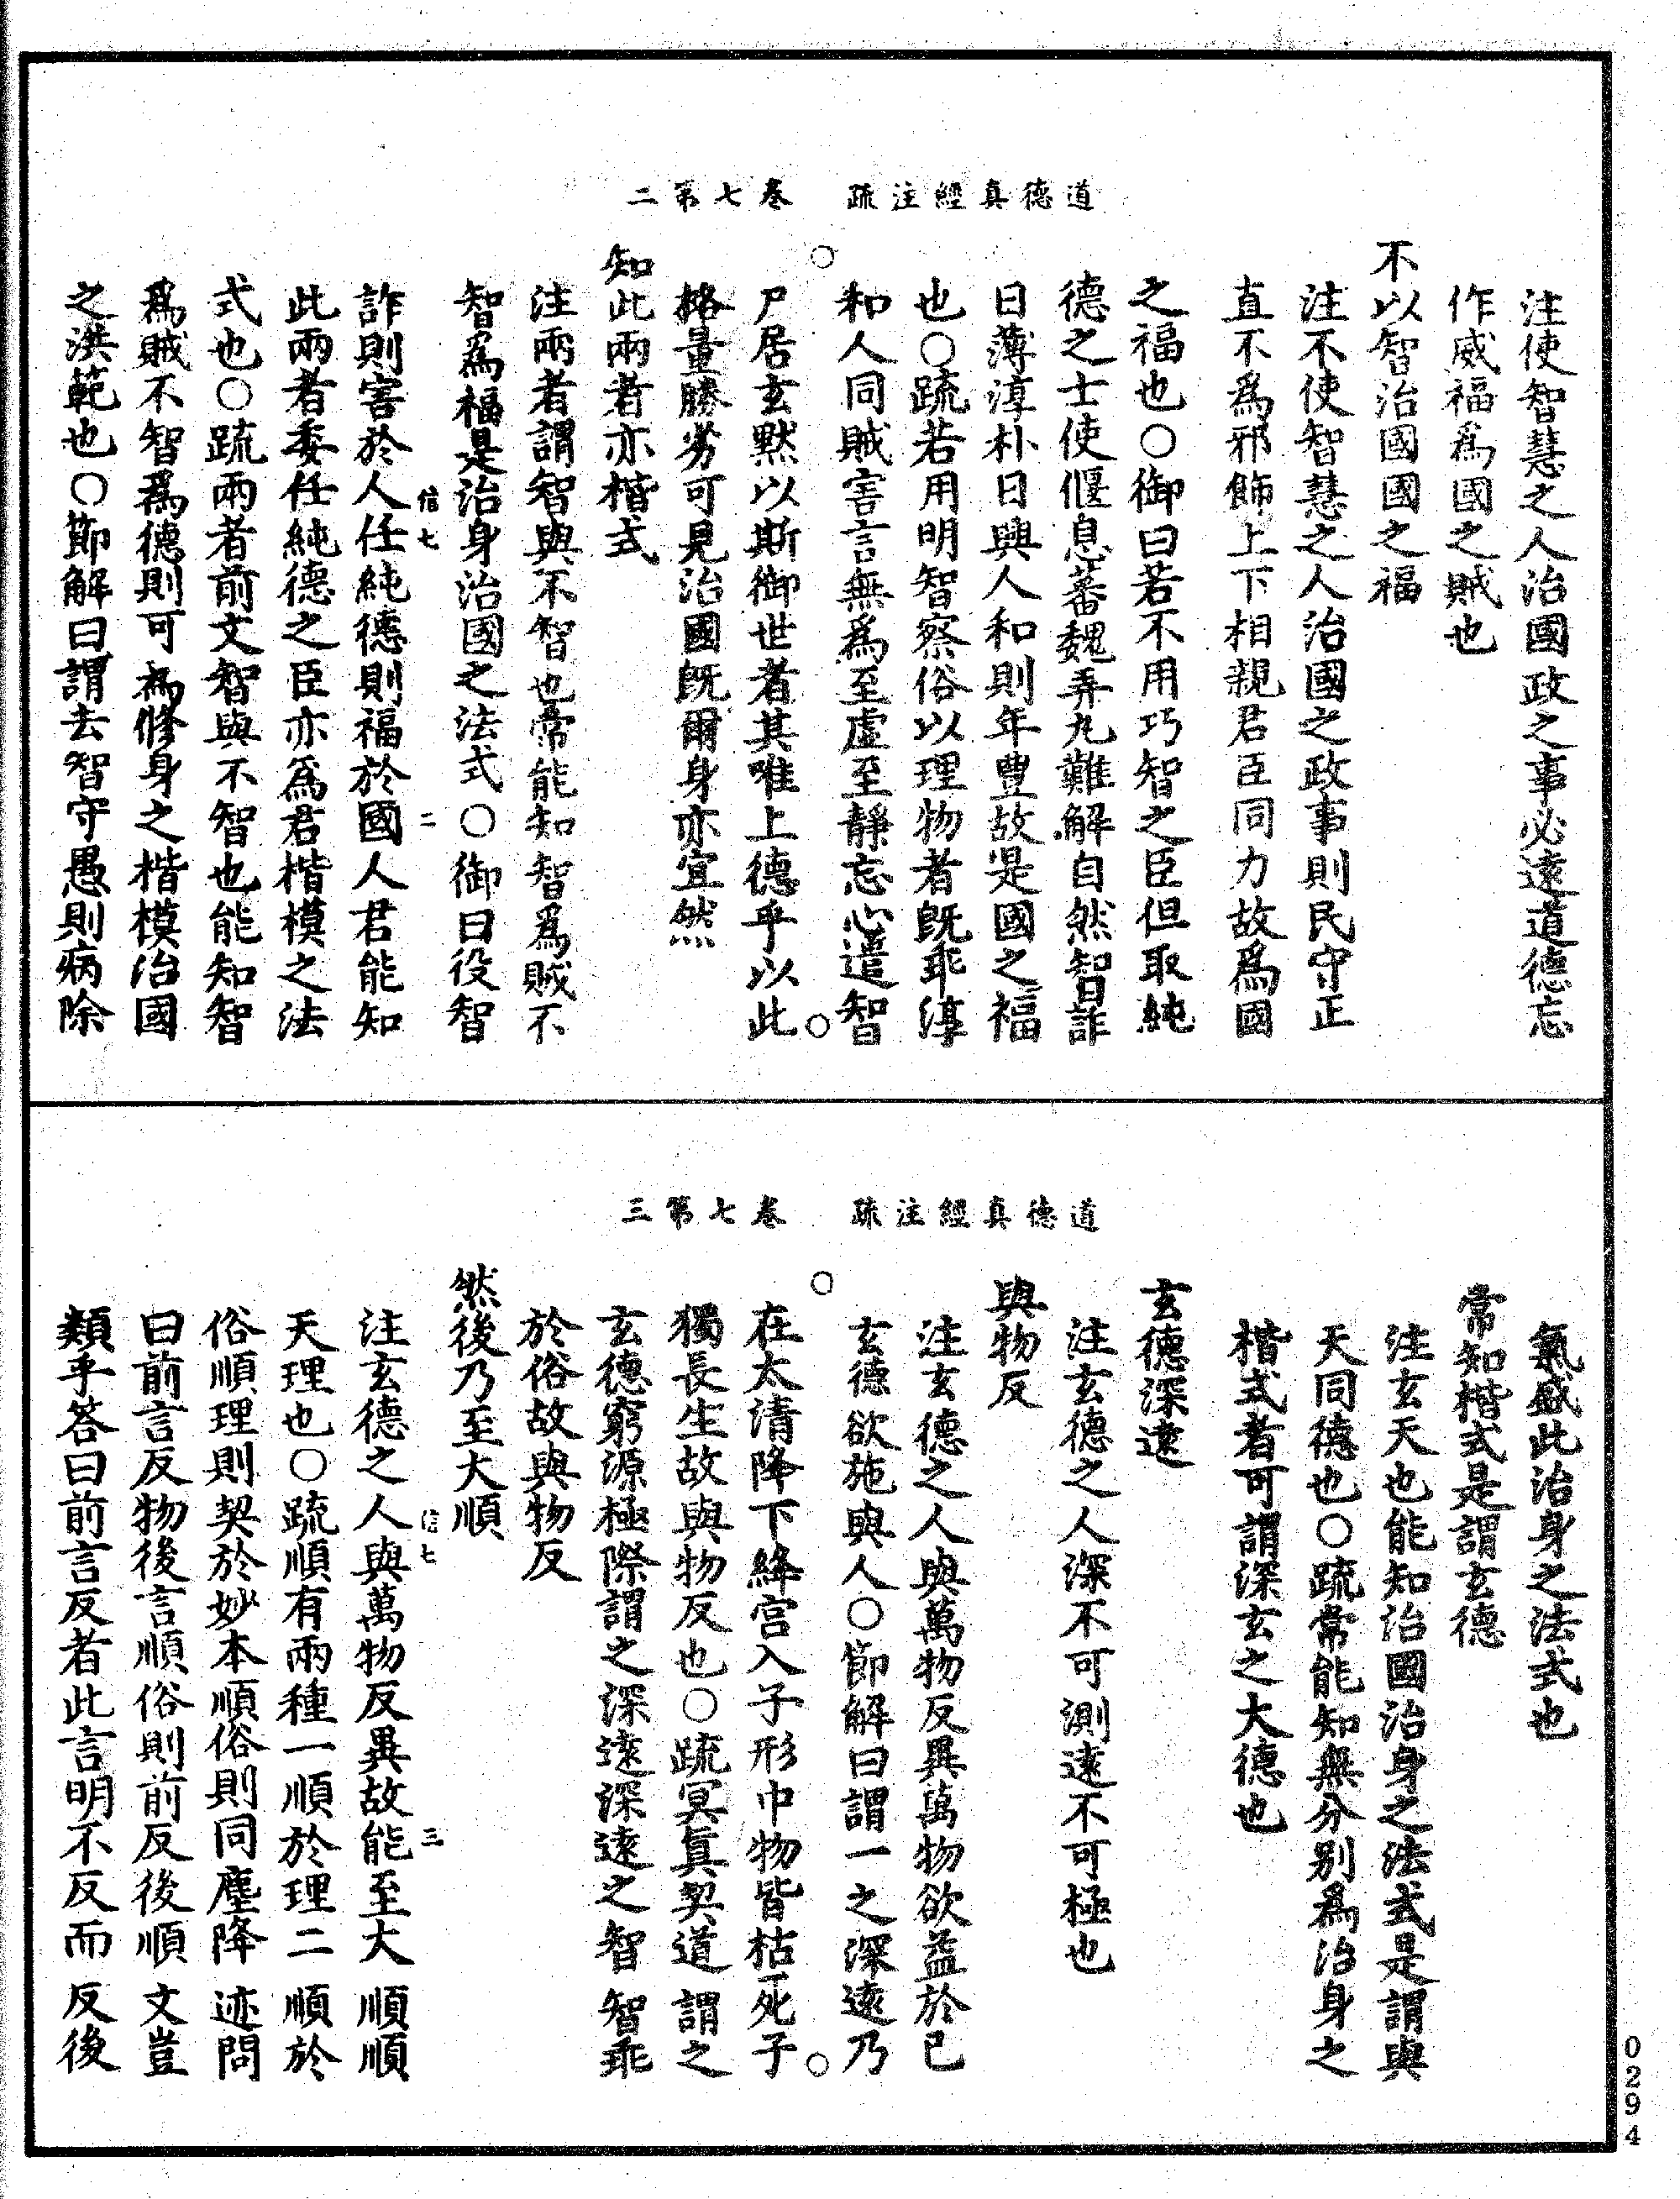 道德真經注疏　卷七第二
注使智慧之人治國政之事必遠道德忘
作威福爲國之賊也
不以智治國國之福
注不使智慧之人治國之政事則民守正
直不爲邪飾上下相親君臣同力故爲國
之福也○御曰若不用巧智之臣但取純
德之士使偃息蕃魏弄丸難解自然智詐
日薄淳朴日興人和則年豊故是國之福
也○疏若用明智察俗以理物者旣乖淳
和人同賊害言無爲至虛至靜忘心遣智
尸居玄默以斯御世者其唯上德乎以此
格量勝劣可見治國旣爾身亦宜然
知此兩者亦楷式
注兩者謂智與不智也常能知智爲賊不
智爲福是治身治國之法式○御曰役智
詐則害於人任純德則福於國人君能知
信七　二
此兩者委任純德之臣亦爲君楷模之法
式也○疏兩者前文智與不智也能知智
爲賊不智爲德則可爲修身之楷模治國
之洪範也○節解曰謂去智守愚則病除
道德真經注疏　卷七第三
氣盛此治身之法式也
常知楷式是謂玄德
注玄天也能知治國治身之法式是謂與
天同德也○疏常能知無分別爲治身之
楷式者可謂深玄之大德也
玄德深遠
注玄德之人深不可測遠不可極也
與物反
注玄德之人與萬物反異萬物欲益於已
玄德欲施與人○節解曰謂一之深遠乃
在太清降下絳宫入子形中物皆枯死子
獨長生故與物反也○疏冥眞契道謂之
玄德窮源極際謂之深遠深遠之智智乖
於俗故與物反
然後乃至大順
注玄德之人與萬物反異故能至大順順
信七　三
天理也○疏順有兩種一順於理二順於
俗順理則契於妙本順俗則同塵降迹問
曰前言反物後言順俗則前反後順文豈
類乎答曰前言反者此言明不反而反後
0294